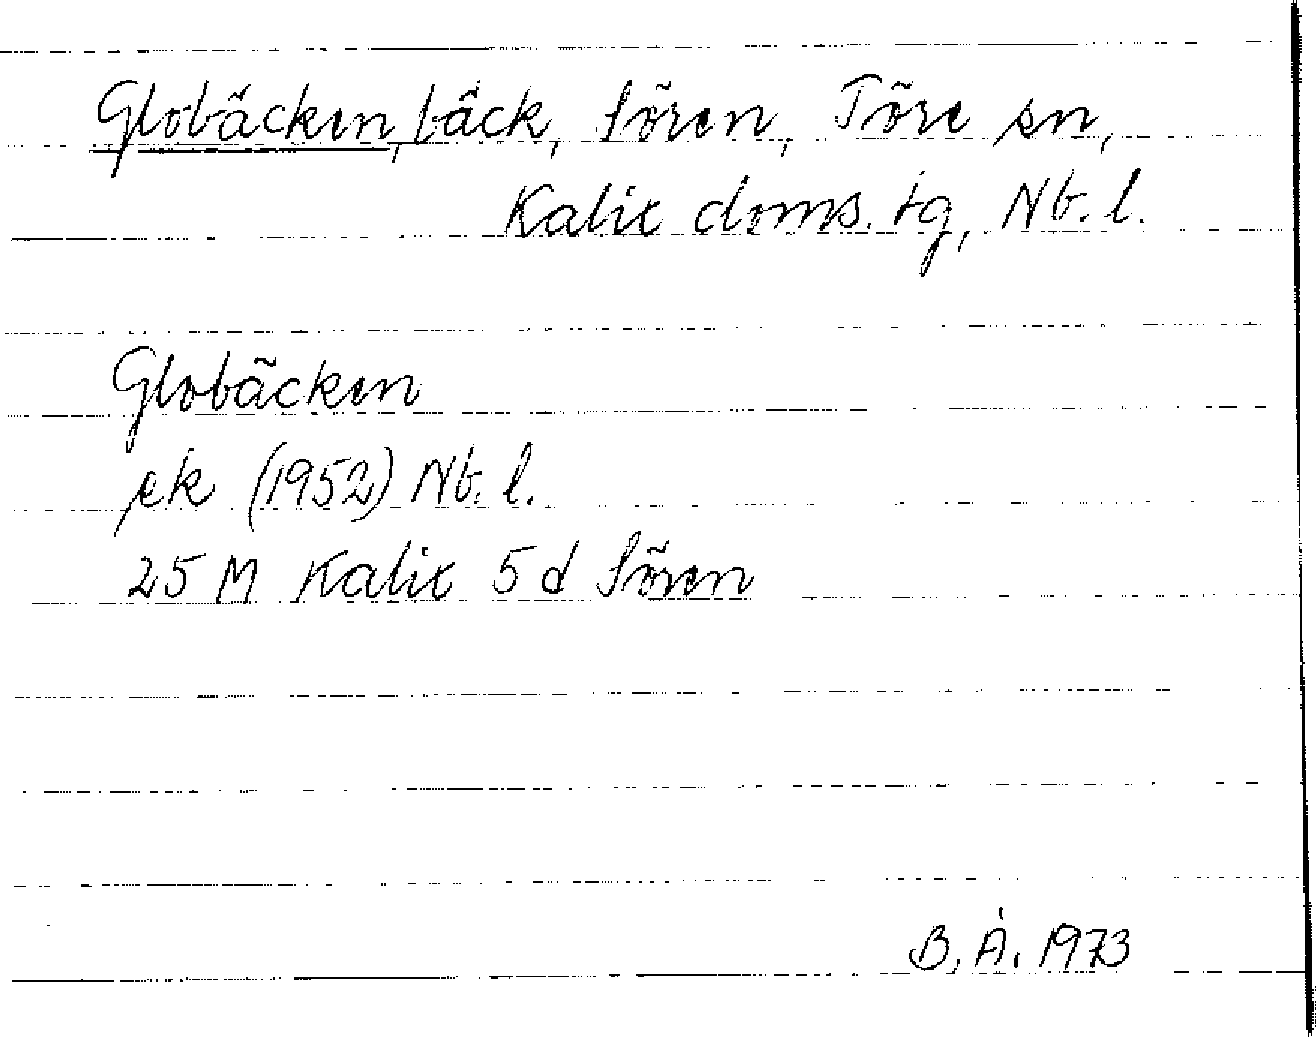 Globäcken, bäck, Sören, Töre sn,
Kalix doms. tg, Nb. l.
Globäcken
ek (1952) Nb. l.
25 M Kalix 5 d Sören
B. Å. 1973